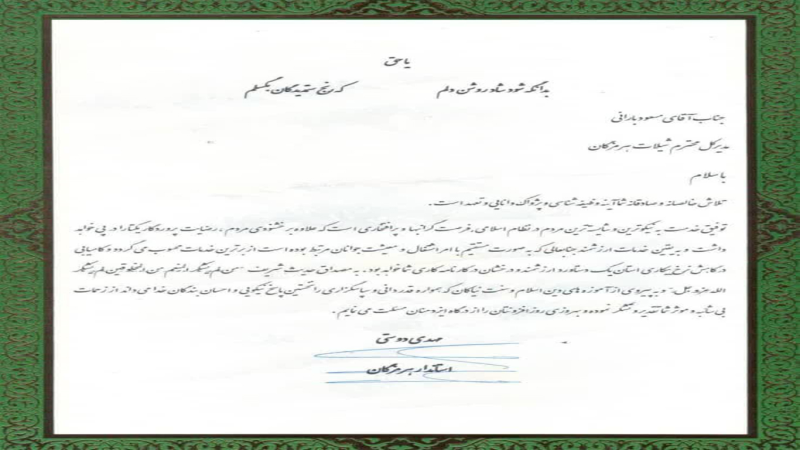 یا حق
بدانگه شود شاد و روشن دلم که رنج ستمدیدگان بگسلم
جناب آقای مسعود بارانی
مدیرکل محترم شیلات هرمزگان
با سلام
تلاش خالصانه و صادقانه شما آینه وظیفه شناسی و پژواک دانایی و تعهد است.
توفیق خدمت به نیکوترین و شایسته ترین مردم در نظام اسلامی، فرصت گرانبها و پرافتخاری است که علاوه بر خشنودی مردم، رضایت پروردگار یکتا را در پی خواهد
داشت و به یقین خدمات ارزشمند جنابعالی که به صورت مستقیم با امر اشتغال و معیشت جوانان مرتبط بوده است از برترین خدمات محسوب می گردد و کامیابی
در کاهش نرخ بیکاری استان یک دستاورد ارزشمند و درخشان در کارنامه کاری شما خواهد بود. به مصداق حدیث شریف "من لم یشکر المنعم من المخلوقین لم یشکر
الله عزوجل" و به پیروی از آموزه های دین اسلام و سنت نیاکان که همواره قدردانی و سپاسگزاری را نخستین پاسخ نیکویی و احسان بندگان خدا می داند از زحمات
بی شائبه و موثر شما تقدیر و تشکر نموده و بهروزی روزافزونتان را از درگاه ایزدمنان مسئلت می نمایم.
مهدی دوستی
استاندار هرمزگان